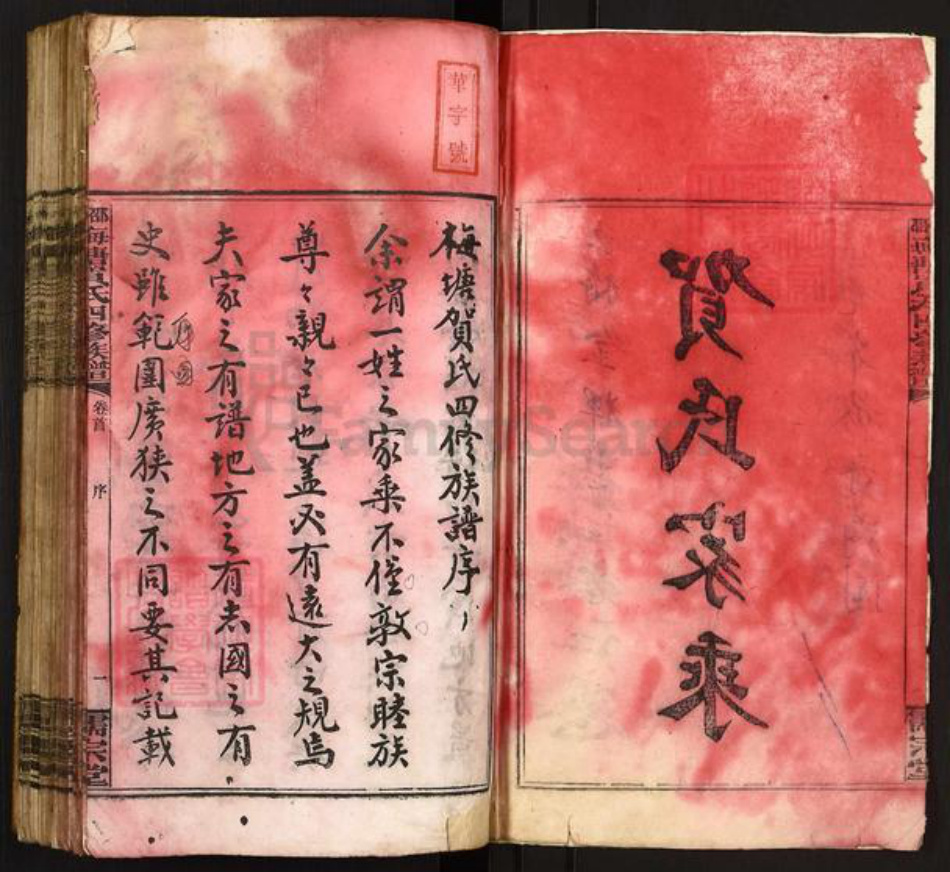 賀氏家乘
華字號
梅塘賀氏四修族譜序
余謂一姓之家乘不僅敦宗睦族
尊々親々已也蓋必有遠大之規焉
夫家之有譜地方之有志國之有
史雖範圍廣狹之不同要其記載
卷首
序
一
FamilySearch